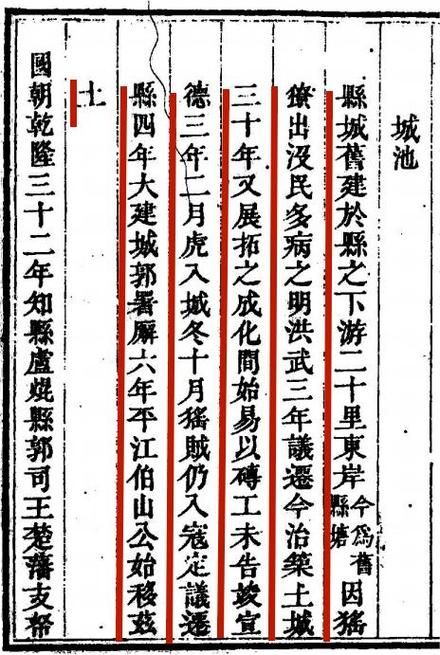 城池
縣城舊建於縣之下游二十里東岸今爲舊縣塘因猺
獠出沒民多病之明洪武三年議遷今治築土城
三十年又展拓之成化間始易以磚工未告竣宣
德三年二月虎入城冬十月猺賊仍入寇定議遷
縣四年大建城郭署廨六年平江伯山公始移茲
土
國朝乾隆三十二年知縣盧焜縣郭司王楚藩支帑